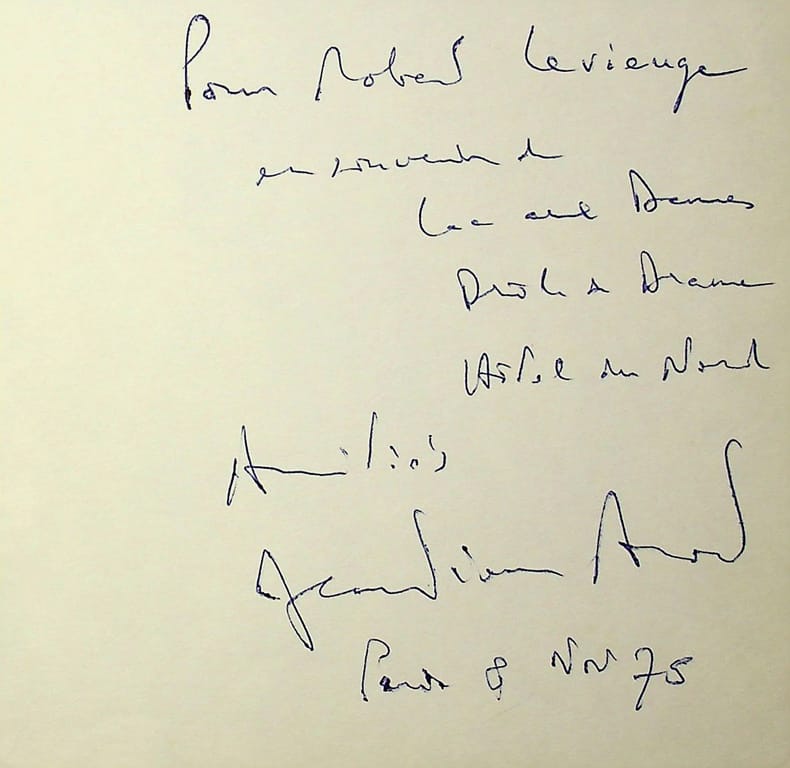 Pour Robert Levieuge
en souvenir de
Lac aux Dames
Drôle de Drame
Hôtel du Nord
Amitiés
Jean-Pierre Aumont
Paris 8 Nov 75